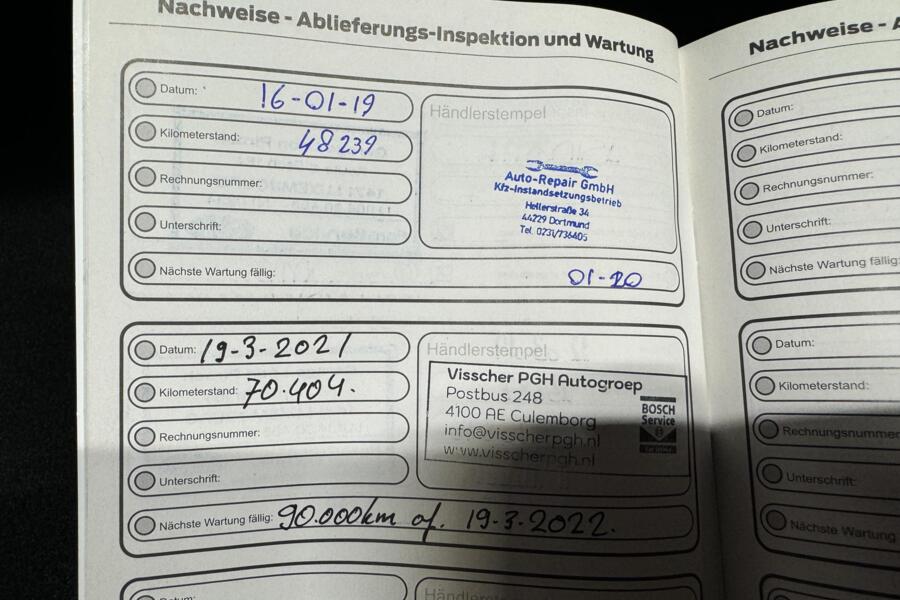 Nachweise - Ablieferungs-Inspektion und Wartung
Datum: 16-01-19
Kilometerstand: 48239
Rechnungsnummer:
Unterschrift:
Händlerstempel
Auto-Repair GmbH
Kfz-Instandsetzungsbetrieb
Hellerstraße 34
44229 Dortmund
Tel. 0231/736405
Nächste Wartung fällig: 01-20
Datum: 19-3-2021
Kilometerstand: 70.404.
Rechnungsnummer:
Unterschrift:
Händlerstempel
Visscher PGH Autogroep
Postbus 248
4100 AE Culemborg
info@visscherpgh.nl
www.visscherpgh.nl
BOSCH
Service
Nächste Wartung fällig: 90.000km of. 19-3-2022.
Datum:
Händlerstempel
Nachweise -
Datum:
Kilometerstand:
Rechnungsnummer:
Unterschrift:
Nächste Wartung fällig:
Datum:
Kilometerstand:
Rechnungsnummer
Unterschrift:
Nächste Wartung